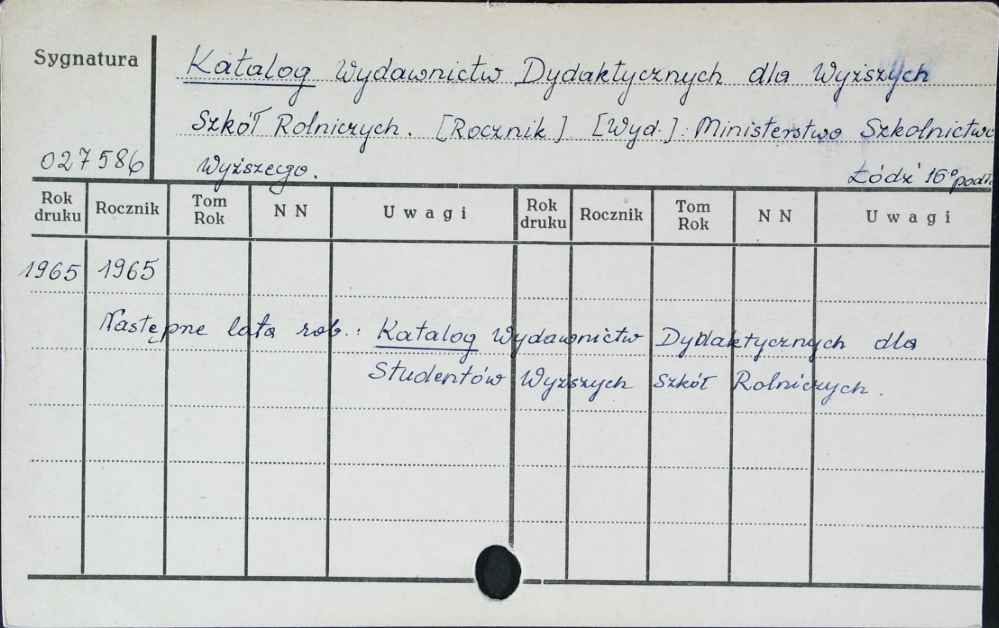 Sygnatura
Katalog Wydawnictw Dydaktycznych dla Wyższych
Szkół Rolniczych. [Rocznik] [Wyd.]: Ministerstwo Szkolnictwa
027586 Wyższego. Łódź 16° podł.
Rok druku Rocznik Tom Rok NN Uwagi Rok druku Rocznik Tom Rok NN Uwagi
1965 1965
Następne lata zob.: Katalog Wydawnictw Dydaktycznych dla
Studentów Wyższych Szkół Rolniczych.